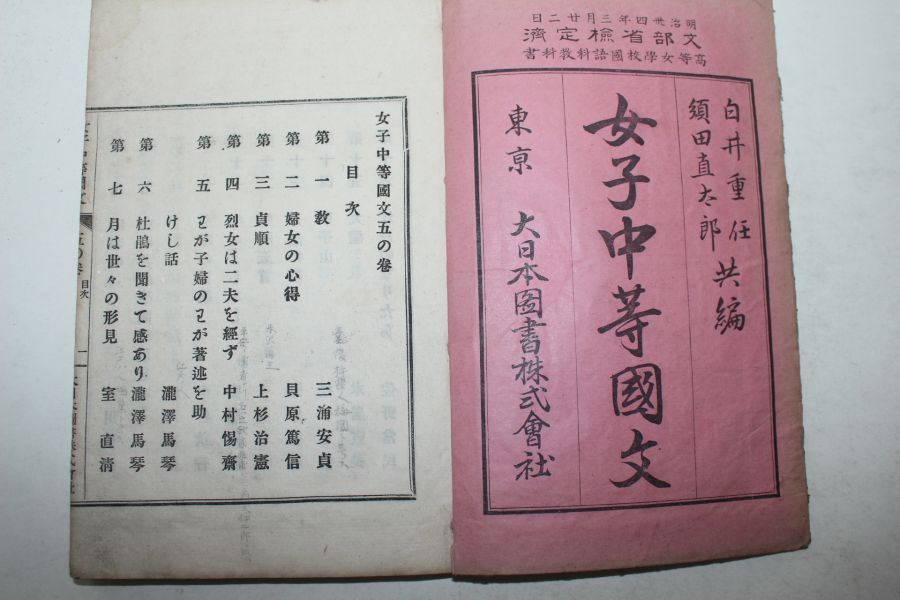 明治卅四年三月廿二日
文部省檢定濟
高等女學校國語科敎科書
白井重任
須田直太郎
共編
女子中等國文
東京 大日本圖書株式會社
女子中等國文五の卷
目次
第一 敎 三浦安貞
第二 婦女の心得 貝原篤信
第三 貞順 上杉治憲
第四 烈女は二夫を經ず 中村惕齋
第五 わが子婦のわが著述を助
けし話 瀧澤馬琴
第六 杜鵑を聞きて感あり 瀧澤馬琴
第七 月は世々の形見 室直清
女子中等國文
五の卷 目次
一